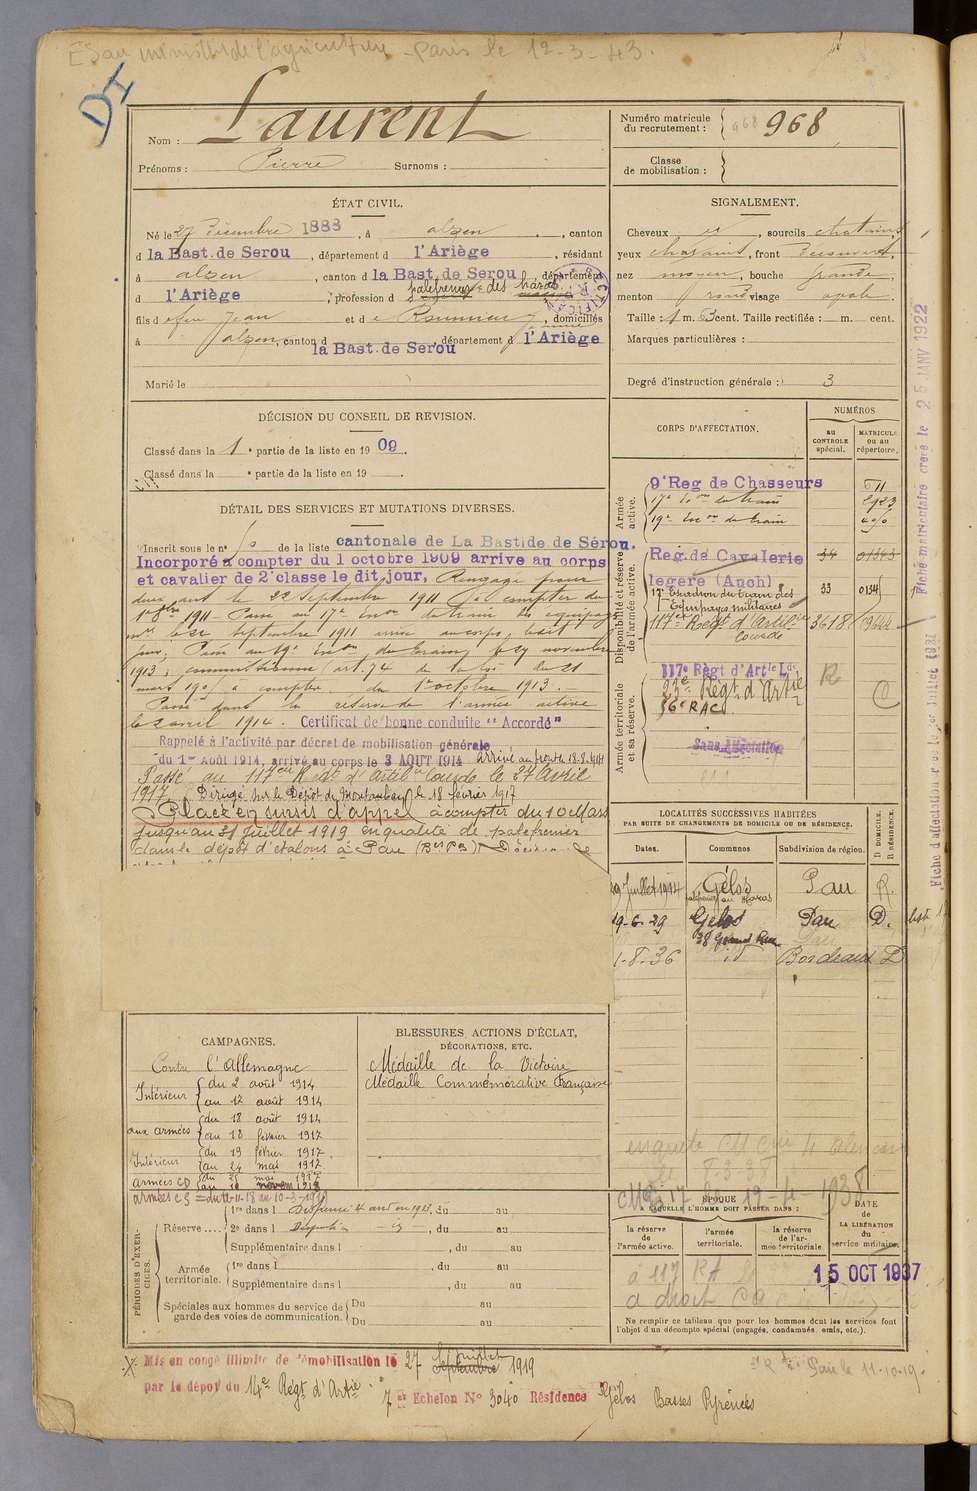 ESau ministère de l'agriculture - Paris le 12-3-43.
DI
Nom : Laurent
Prénoms : Pierre Surnoms :
Numéro matricule du recrutement : 968 968
Classe de mobilisation :
ÉTAT CIVIL.
Né le 27 Décembre 1888, à alzen, canton
d la Bast. de Serou, département d l'Ariège, résidant
à alzen, canton d la Bast. de Serou, département
d l'Ariège, profession d palefrenier des haras
fils d e feu Jean et d e Roumieu, domiciliés
à alzen, canton d la Bast. de Serou, département d l'Ariège
Marié le
SIGNALEMENT.
Cheveux et, sourcils chatains
yeux chatains, front découvert,
nez moyen, bouche grande,
menton rond visage ovale.
Taille : 1 m. 3 cent. Taille rectifiée : m. cent.
Marques particulières :
Degré d'instruction générale : 3
DÉCISION DU CONSEIL DE REVISION.
Classé dans la 1e partie de la liste en 1909.
Classé dans la e partie de la liste en 19
DÉTAIL DES SERVICES ET MUTATIONS DIVERSES.
Inscrit sous le n° de la liste cantonale de La Bastide de Sérou.
Incorporé à compter du 1 octobre 1909 arrive au corps
et cavalier de 2e classe le dit jour, Rengagé pour
deux ans le 22 Septembre 1911 à compter du
1er 8bre 1911 - Passé au 17e Encon du train des équipages
mres le 22 Septembre 1911 arrive au corps ledit
jour. Passé au 19e Encon du train le 29 novembre
1913, commissionné (art. 74 de la loi du 21
mars 1905) à compter du 1er octobre 1913. -
Passé dans la réserve de l'armée active
le 2 avril 1914. Certificat de bonne conduite "Accordé"
Rappelé à l'activité par décret de mobilisation générale
du 1er Août 1914, arrivé au corps le 3 AOUT 1914 arrivé au front le 18.8.414
Passé au 117eme Régt d'Artie Lourde le 27 Avril
1917 (Dirigé sur le Dépôt de Montauban le 18 février 1917
Placé en sursis d'appel à compter du 10 Mars
jusqu'au 31 Juillet 1919 en qualité de palefrenier
dans le dépôt d'étalons à Pau (Bses Pes) Décision de
CORPS D'AFFECTATION.
NUMÉROS
au CONTROLE spécial.
MATRICULE ou au répertoire.
Armée active.
9e Reg de Chasseurs 511
17e Encon du train 2923
19e Encon du train
Disponibilité et réserve de l'armée active.
Reg. de Cavalerie 34 01343
légère (Auch) 33 0134
17e Escadron du train des Equipages militaires
117e Régt d'Artie Lourde 3618
Armée territoriale et sa réserve.
117e Règt d'Artle Lde R
23e Régt d'Artie C
36e RAC
Sans Affectation
LOCALITÉS SUCCESSIVES HABITÉES
PAR SUITE DE CHANGEMENTS DE DOMICILE OU DE RÉSIDENCE.
Dates. Communes Subdivision de région. D DOMICILE. R RÉSIDENCE.
29 Juillet 1914 Gélos palefrenier au Haras Pau R.
19-6-29 Gelos 38 Grand Rue Pau D.
1-8-36 id Bordeaux D
CAMPAGNES.
Contre l'Allemagne
Intérieur du 2 août 1914
au 17 août 1914
aux armées du 18 août 1914
au 18 février 1917
Intérieur du 19 février 1917
au 24 mai 1917
armées CD du 25 mai 1917
au 10 novem 1918
BLESSURES, ACTIONS D'ÉCLAT, DÉCORATIONS, ETC.
Médaille de la Victoire
Médaille Commémorative Française
PÉRIODES D'EXERCICES.
Réserve .... 1re dans l Dispensé 4 ans en 1913, du au
2e dans l du au
Supplémentaire dans l , du au
Armée territoriale. 1re dans l , du au
Supplémentaire dans l , du au
Spéciales aux hommes du service de garde des voies de communication. Du au
Du au
ÉPOQUE
À LAQUELLE L'HOMME DOIT PASSER DANS :
la réserve de l'armée active.
l'armée territoriale.
la réserve de l'armée territoriale
DATE de LA LIBÉRATION du service militaire
15 OCT 1937
Ne remplir ce tableau que pour les hommes dont les services font
l'objet d'un décompte spécial (engagés, condamnés, omis, etc.).
Mis en congé illimité de démobilisation le 27 Juillet Septembre 1919
par le dépot du 14e Régt d'Artie.
7e Echelon N° 3040 Résidence Gélos Basses Pyrénées
Pau le 11-10-19.
Fiche matriculaire créée le 25 JANV 1922